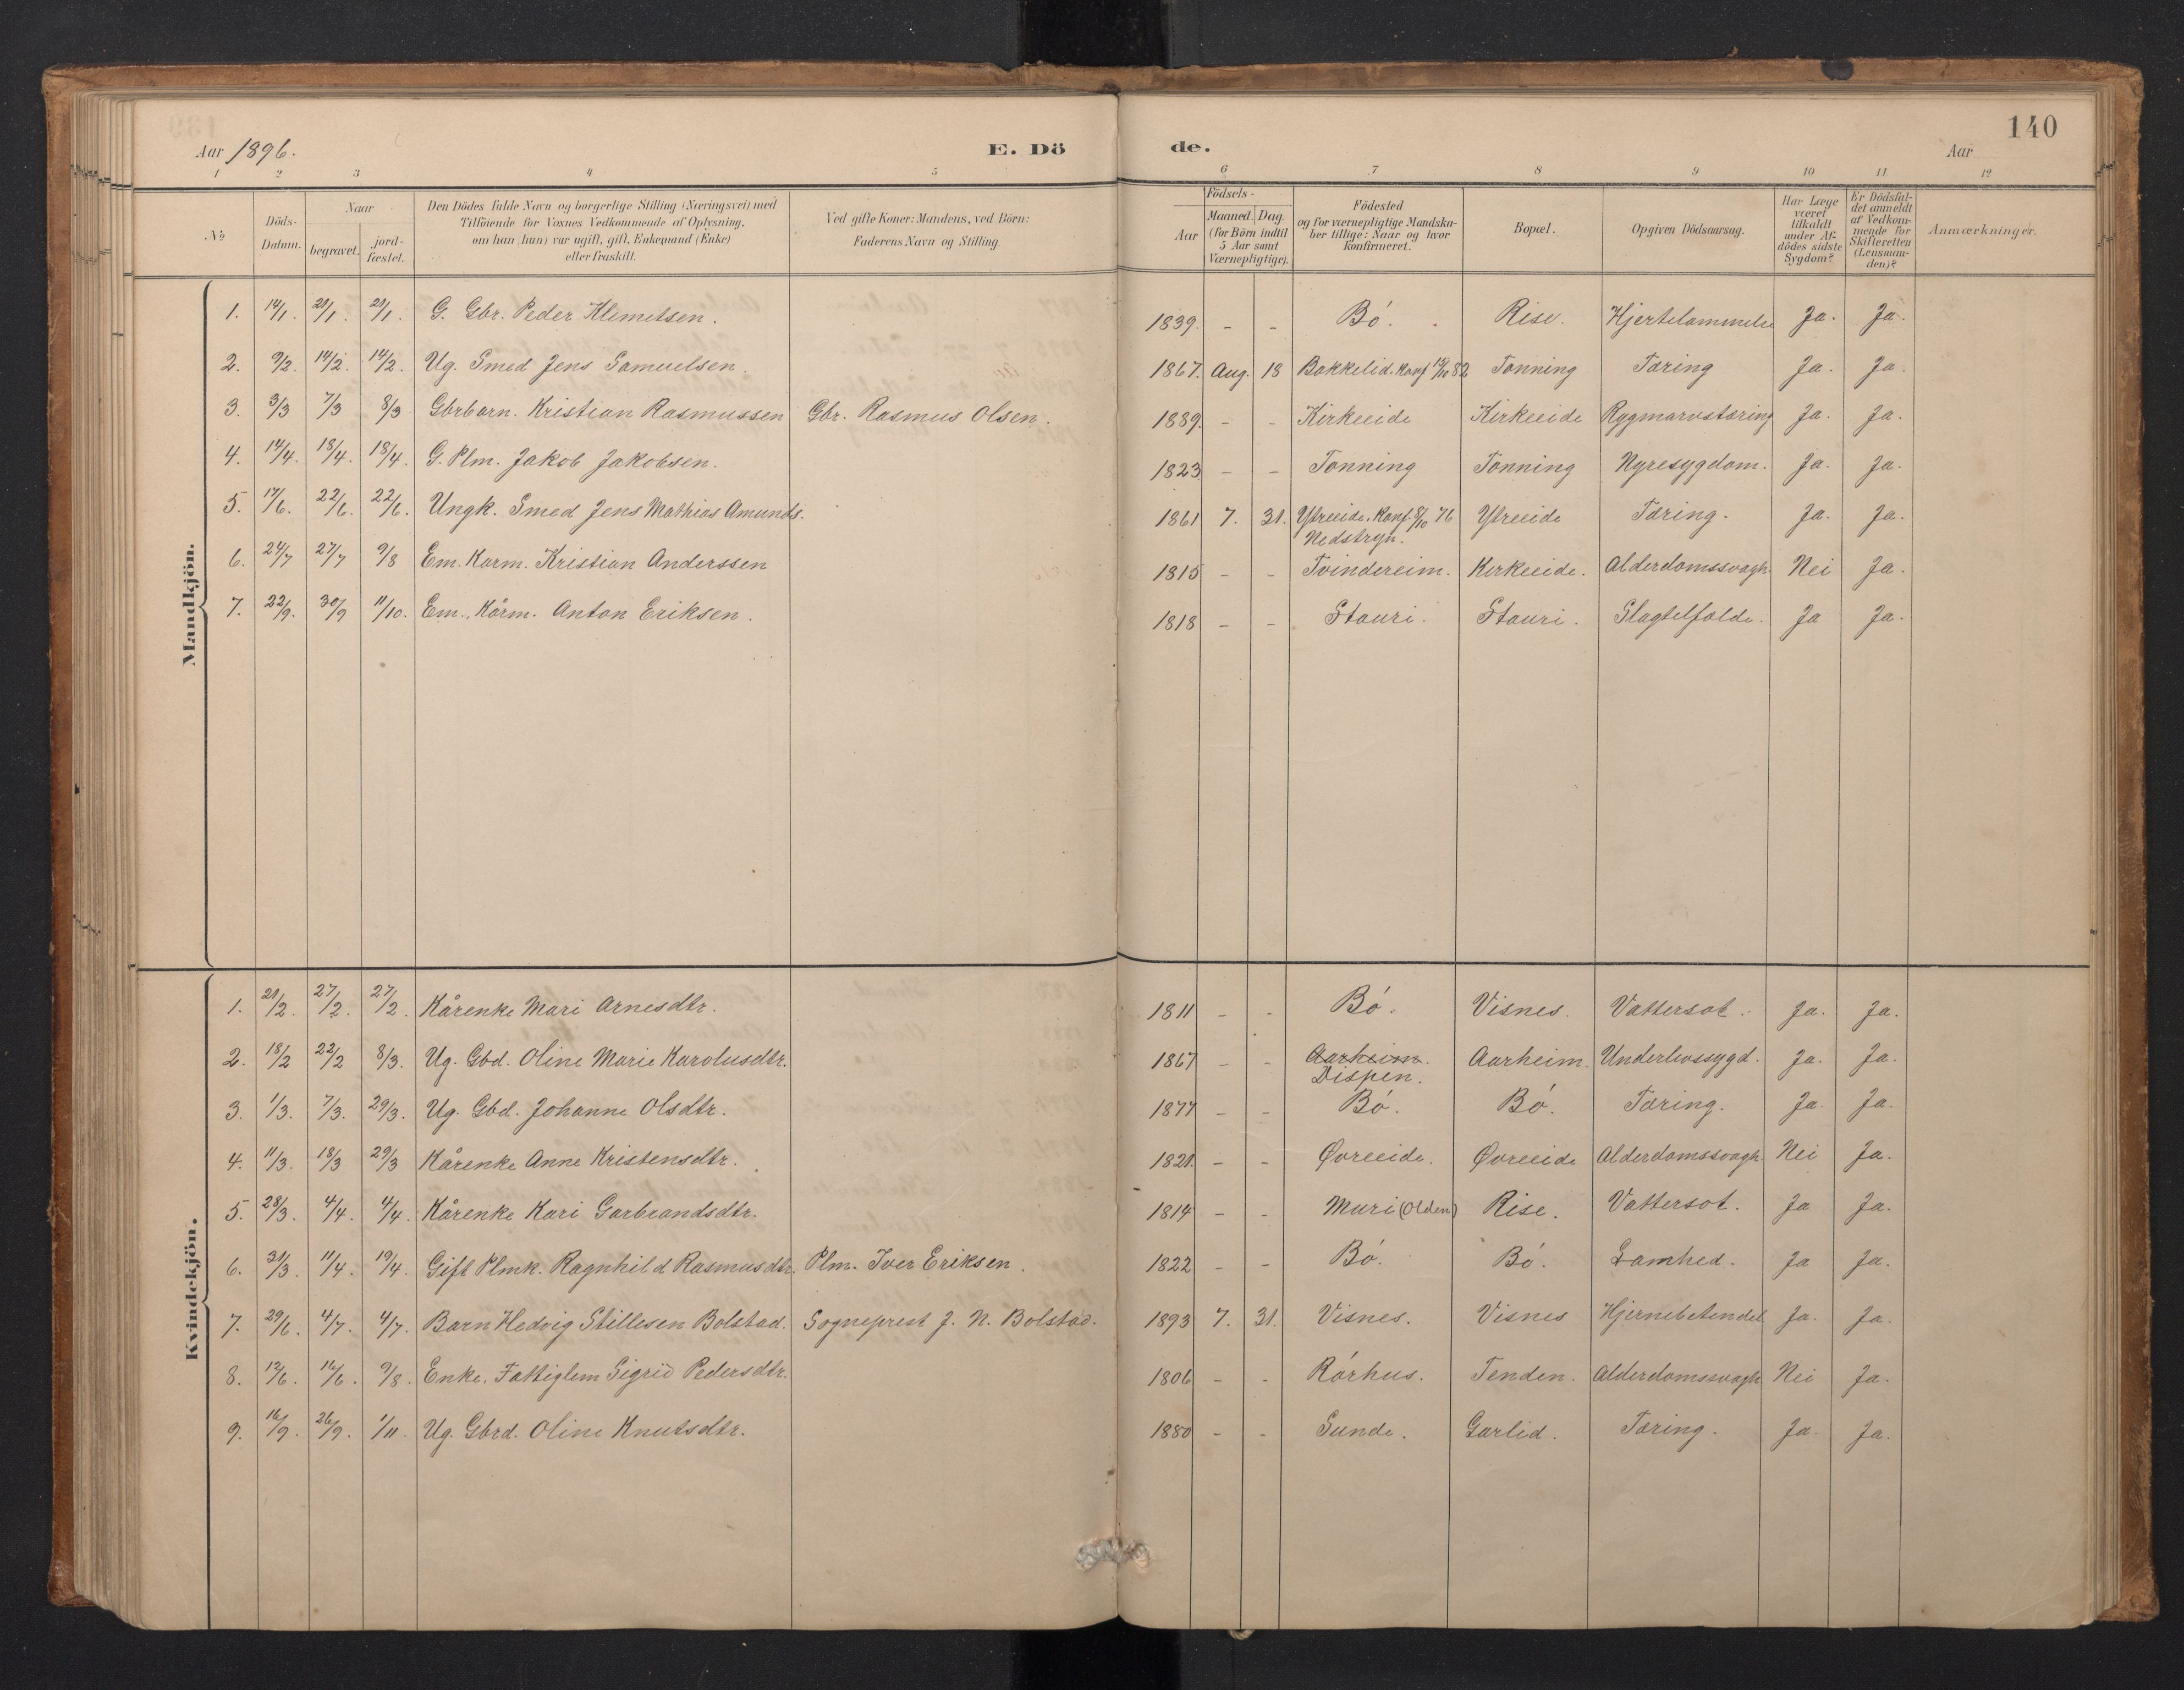 140
Aar 1896. E. Dö de. Aar
1 2 3 4 5 6 7 8 9 10 11 12
No
Döds-
Datum.
Naar
begravet.
jord-
fæstet.
Den Dödes fulde Navn og borgerlige Stilling (Næringsvei) med
Tilföiende for Voxnes Vedkommende af Oplysning,
om han (hun) var ugift, gift, Enkemand (Enke)
eller fraskilt.
Ved gifte Koner: Mandens, ved Börn:
Faderens Navn og Stilling.
Födsels-
Aar
Maaned. Dag.
(for Börn indtil
5 Aar samt
Værnepligtige).
Födested
og for værnepligtige Mandska-
ber tillige: Naar og hvor
Konfirmeret.
Bopæl.
Opgiven Dödsaarsag.
Har Læge
været
tilkaldt
under Af-
dödes sidste
Sygdom?
Er Dödsfal-
det anmeldt
af Vedkom-
mende for
Skifteretten
(Lensman-
den)?
Anmærkninger.
Mandkjön.
1. 14/1. 21/1. 21/1. G. Gbr. Peder Klemetsen. 1839. - - Bó. Rise. Hjertelammelse Ja. Ja.
2. 9/2. 14/2. 14/2. Ug. Smed Jens Samuelsen. 1867. Aug. 18 Bakkelid. Konf 15/10 82 Tonning Tæring Ja. Ja.
3. 3/3 7/3 8/3 Gbrbarn. Kristian Rasmussen Gbr. Rasmus Olsen. 1889. - - Kirkeeide Kirkeeide Rygmarvstæring Ja. Ja.
4. 14/4. 18/4. 18/4. G. Plm. Jakob Jakobsen. 1823 - - Tonning Tonning Nyresygdom. Ja. Ja.
5. 17/6. 22/6. 22/6. Ungk. Smed Jens Mathias Amunds. 1861 7. 31. Ytreeide. Konf. 8/10 76 Ytreeide Tæring. Ja. Ja.
Nedstryn.
6. 24/7 27/7 9/8 Em. Karm. Kristian Anderssen 1815 - - Tvindereim. Kirkeeide. Alderdomssvagh. Nei Ja.
7. 22/9. 30/9 11/10. Em., Kårm. Anton Eriksen. 1818 - - Stauri. Stauri. Slagtelfælde. Ja Ja.
Kvindekjön.
1. 21/2. 27/2. 27/2. Kårenke Mari Arnesdtr. 1811 - - Bó. Visnes. Vattersot. Ja. Ja.
2. 18/2 22/2 8/3. Ug. Gbd. Oline Marie Karolusdtr. 1867 - - Aarheim. Aarheim. Underlivssygd. Ja. Ja.
Dispen.
3. 1/3. 7/3. 29/3. Ug. Gbd. Johanne Olsdtr. 1877 - - Bó. Bó. Tæring. Ja. Ja.
4. 11/3. 18/3 29/3 Kårenke Anne Kristensdtr. 1821. - - Øvreeide. Øvreeide Alderdomssvagh Nei Ja.
5. 28/3. 4/4. 4/4. Kårenke Kari Garbrandsdtr. 1814 - - Muri (Olden) Rise. Vattersot. Ja Ja.
6. 31/3. 11/4. 19/4. Gift Plmk. Ragnhild Rasmusdtr. Plm. Iver Eriksen. 1822 - - Bó. Bó. Lamhed. Ja Ja.
7. 29/6. 4/7. 4/7. Barn Hedvig Stillesen Bolstad. Sogneprest J. N. Bolstad. 1893 7. 31. Visnes. Visnes Hjernebetændel. Ja. Ja.
8. 12/6. 16/6. 9/8. Enke. Fattiglem Sigrid Pedersdtr. 1806 - - Rórhus. Tenden. Alderdomssvagh Nei Ja.
9. 16/9. 26/9. 1/11. Ug. Gbrd. Oline Knutsdtr. 1880 - - Sunde. Garlid. Tæring. Ja. Ja.